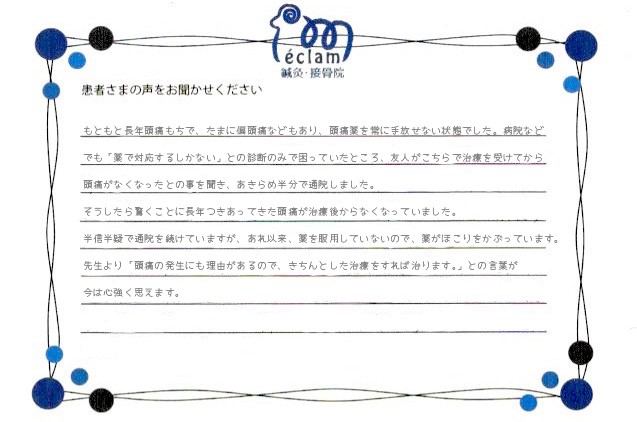 éclam
鍼灸・接骨院
患者さまの声をお聞かせください
もともと長年頭痛もちで、たまに偏頭痛などもあり、頭痛薬を常に手放せない状態でした。病院など
でも「薬で対応するしかない」との診断のみで困っていたところ、友人がこちらで治療を受けてから
頭痛がなくなったとの事を聞き、あきらめ半分で通院しました。
そうしたら驚くことに長年つきあってきた頭痛が治療後からなくなっていました。
半信半疑で通院を続けていますが、あれ以来、薬を服用していないので、薬がほこりをかぶっています。
先生より「頭痛の発生にも理由があるので、きちんとした治療をすれば治ります。」との言葉が
今は心強く思えます。